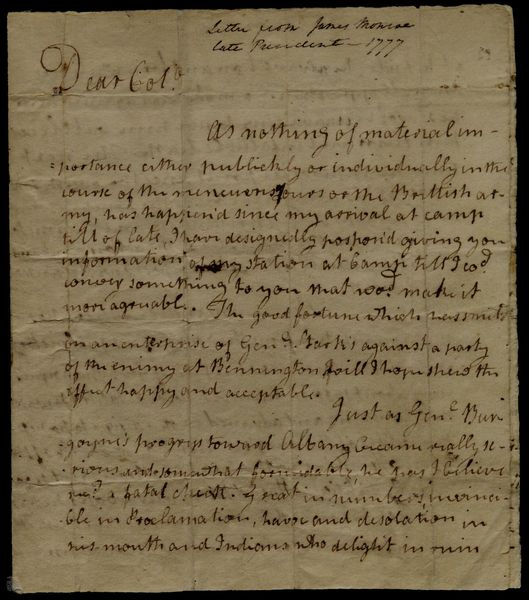 Letter from James Monroe
late President - 1777
Dear Col.o
As nothing of material im-
=portance either publickly or individually in the
course of the meneuvers of ours or the Brittish ar-
my, has happen'd since my arrival at camp
till of late, I have designedly pospon'd giving you
information of my station at Camp till I co.d
convey something to you that wo.d make it
more agreable. The good fortune which has smil'd
on an enterprise of Gen.l Stark's against a party
of the enemy at Bennington will I hope shew the
effect happy and acceptable.
Just as Gen.l Bur-
goyne's progress toward Albany became really se-
rious and somewhat formidable, he has I believe
rec.d a fatal check. Great in numbers invinci-
ble in Proclamation, havoc and desolation in
his mouth and Indians who delight in ruin